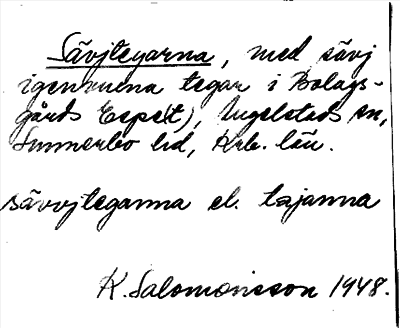 Sävjtegarna, med sävj
igenvuxna tegar i Bolags-
gårds Espet), Angelstads sn,
Sunnerbo hd, Krb. län.
sävvjteganna el. tajanna
K. Salomonsson 1948.